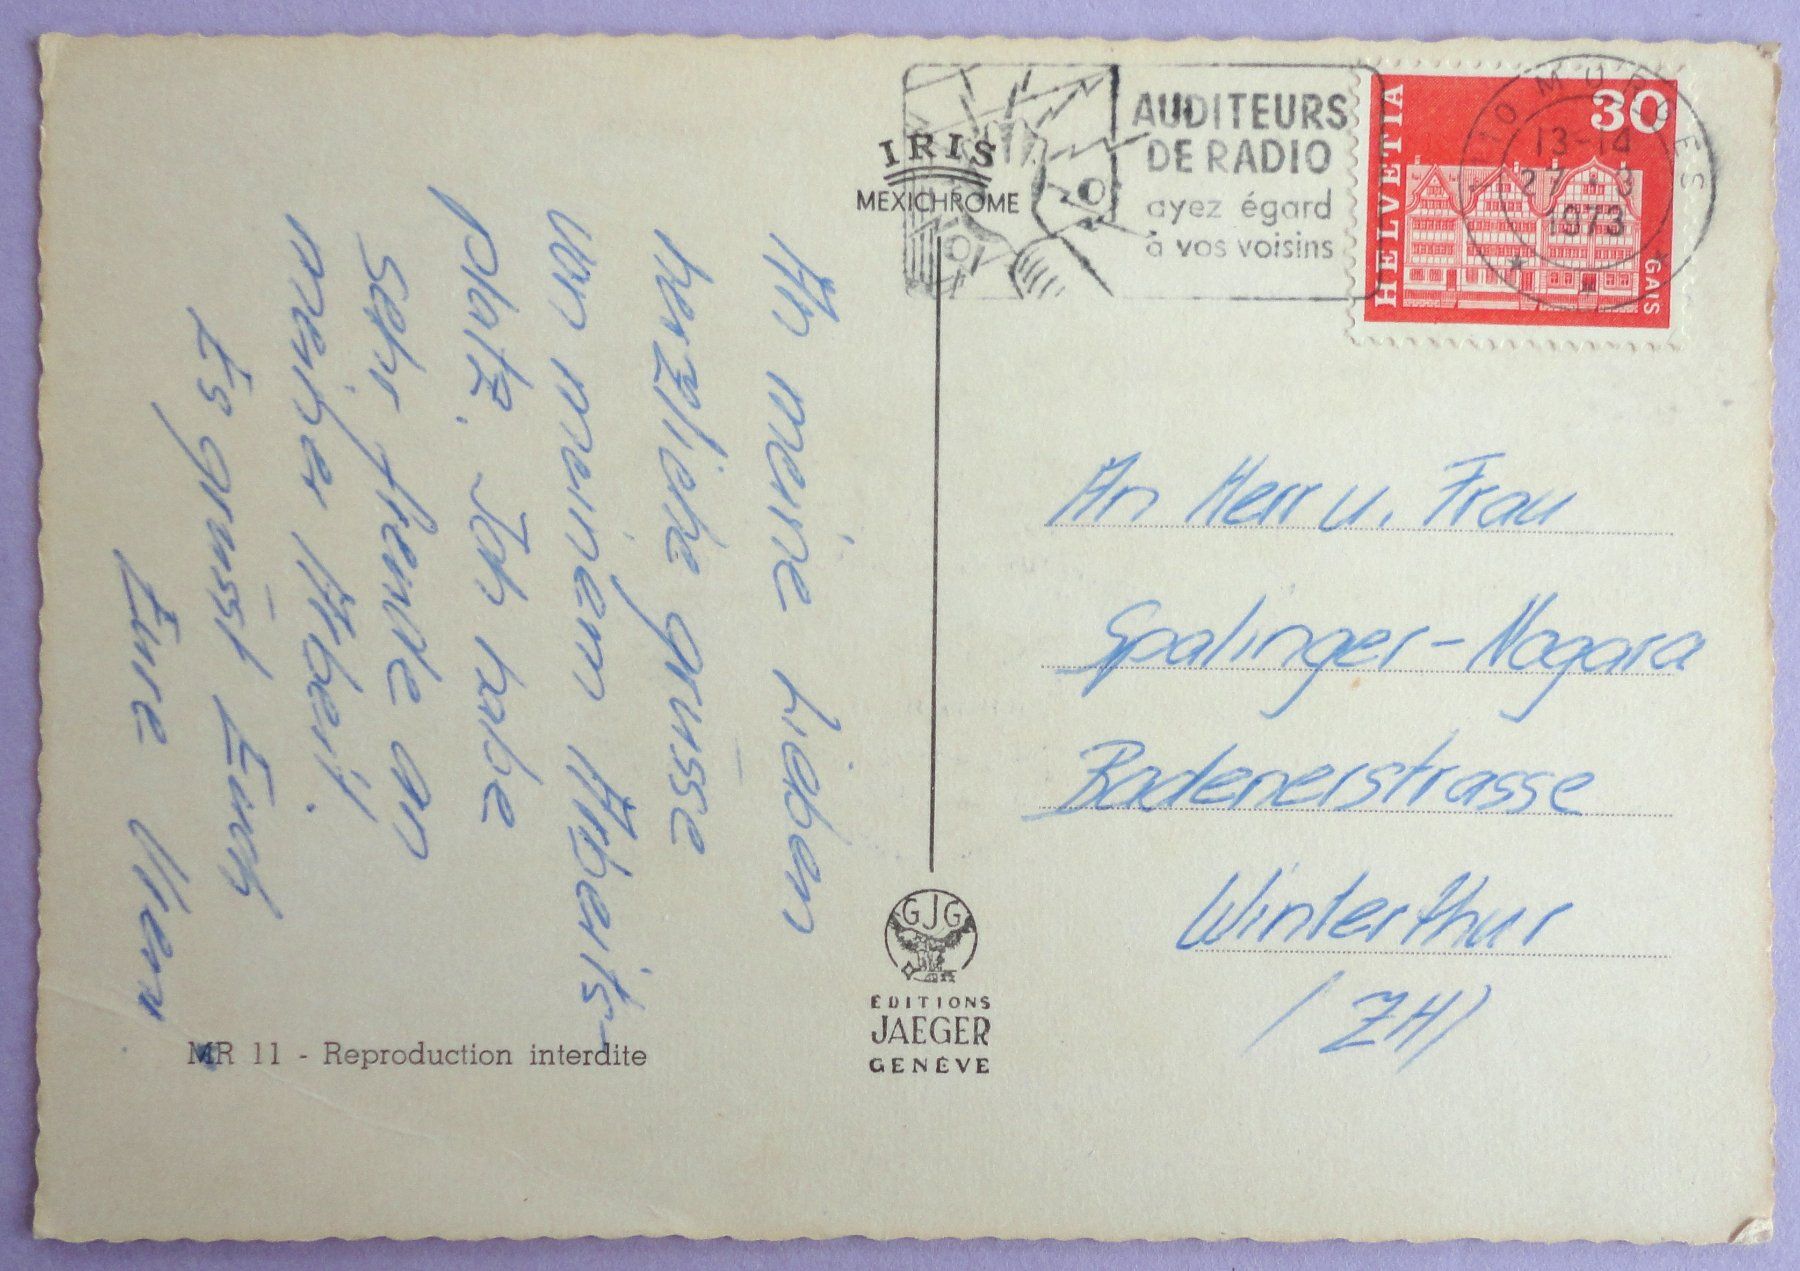 An meine Lieben
herzliche grüsse
von meinem Arbeits-
platz. Ich habe
sehr freude an
meiner Arbeit.
Es grüsst Euch
Eure
MR 11 - Reproduction interdite
IRIS
MEXICHROME
GJG
EDITIONS
JAEGER
GENÈVE
AUDITEURS
DE RADIO
ayez égard
à vos voisins
HELVETIA
30
GAIS
1110 MORGES
13-14
27.-3
1973
An Herr u. Frau
Spalinger-Nogara
Badenerstrasse
Winterthur
(ZH)